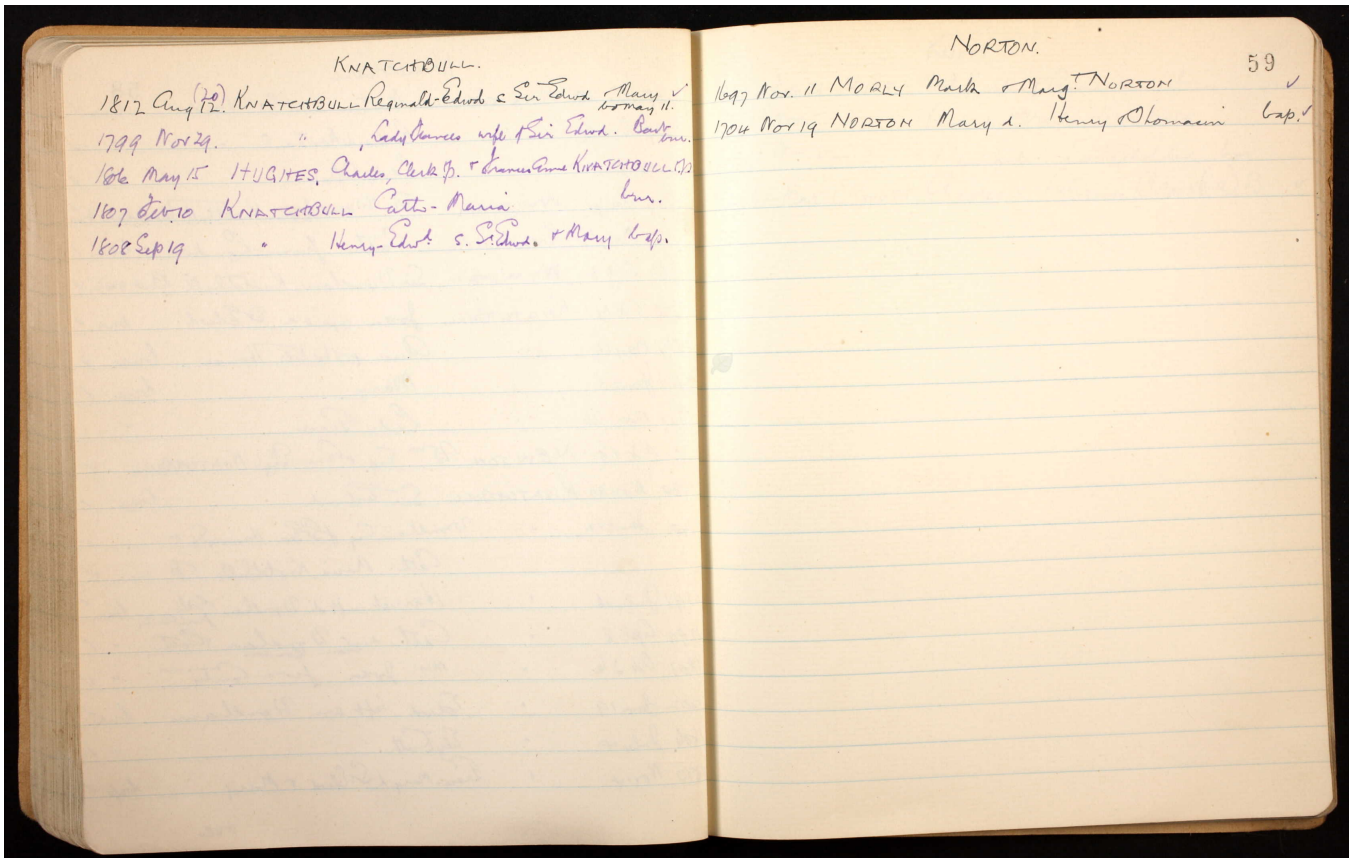 KNATCHBULL.
1812 Aug (20) 12. KNATCHBULL Reginald-Edwd s Sir Edwd & Mary ✓
bo May 11.
1799 Nov 29. " Lady Frances wife of Sir Edwd. Bart bur.
1806 May 15 HUGHES, Charles, Clerk & Frances Anne KNATCHBULL
1807 Feb 10 KNATCHBULL Cath- Maria bur.
1808 Sep 19 " Henry-Edwd s. Sr Edwd. & Mary bap.
NORTON.
59
1697 Nov. 11 MORLY Mark & Margt NORTON ✓
1704 Nov 19 NORTON Mary d. Henry & Thomasin bap. ✓